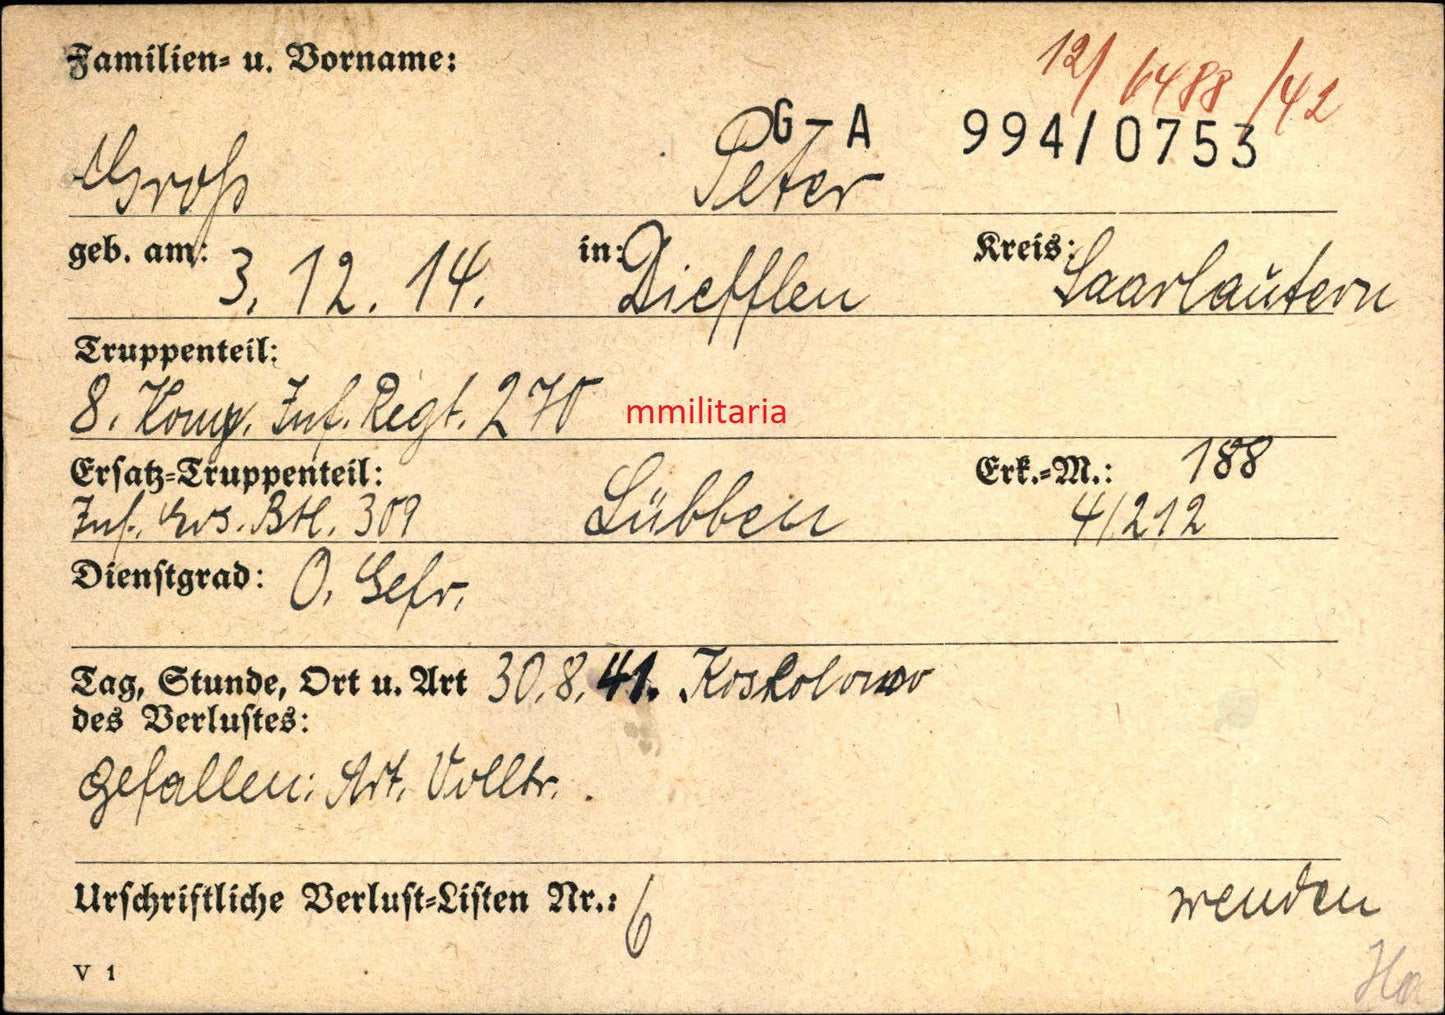 Familien- u. Vorname:
12/6488/42
G-A 994/0753
Groß Peter
geb. am: 3.12.14. in: Diefflen Kreis: Saarlautern
Truppenteil:
8. Komp. Inf. Regt. 270
mmilitaria
Ersatz-Truppenteil: Erk.-M.: 188
Inf. Ers. Btl. 309 Lübben 4/212
Dienstgrad: O. Gefr.
Tag, Stunde, Ort u. Art 30.8.41. Koskolowo
des Verlustes:
gefallen: Art. Volltr.
Urschriftliche Verlust-Listen Nr.: 6 wenden
V 1